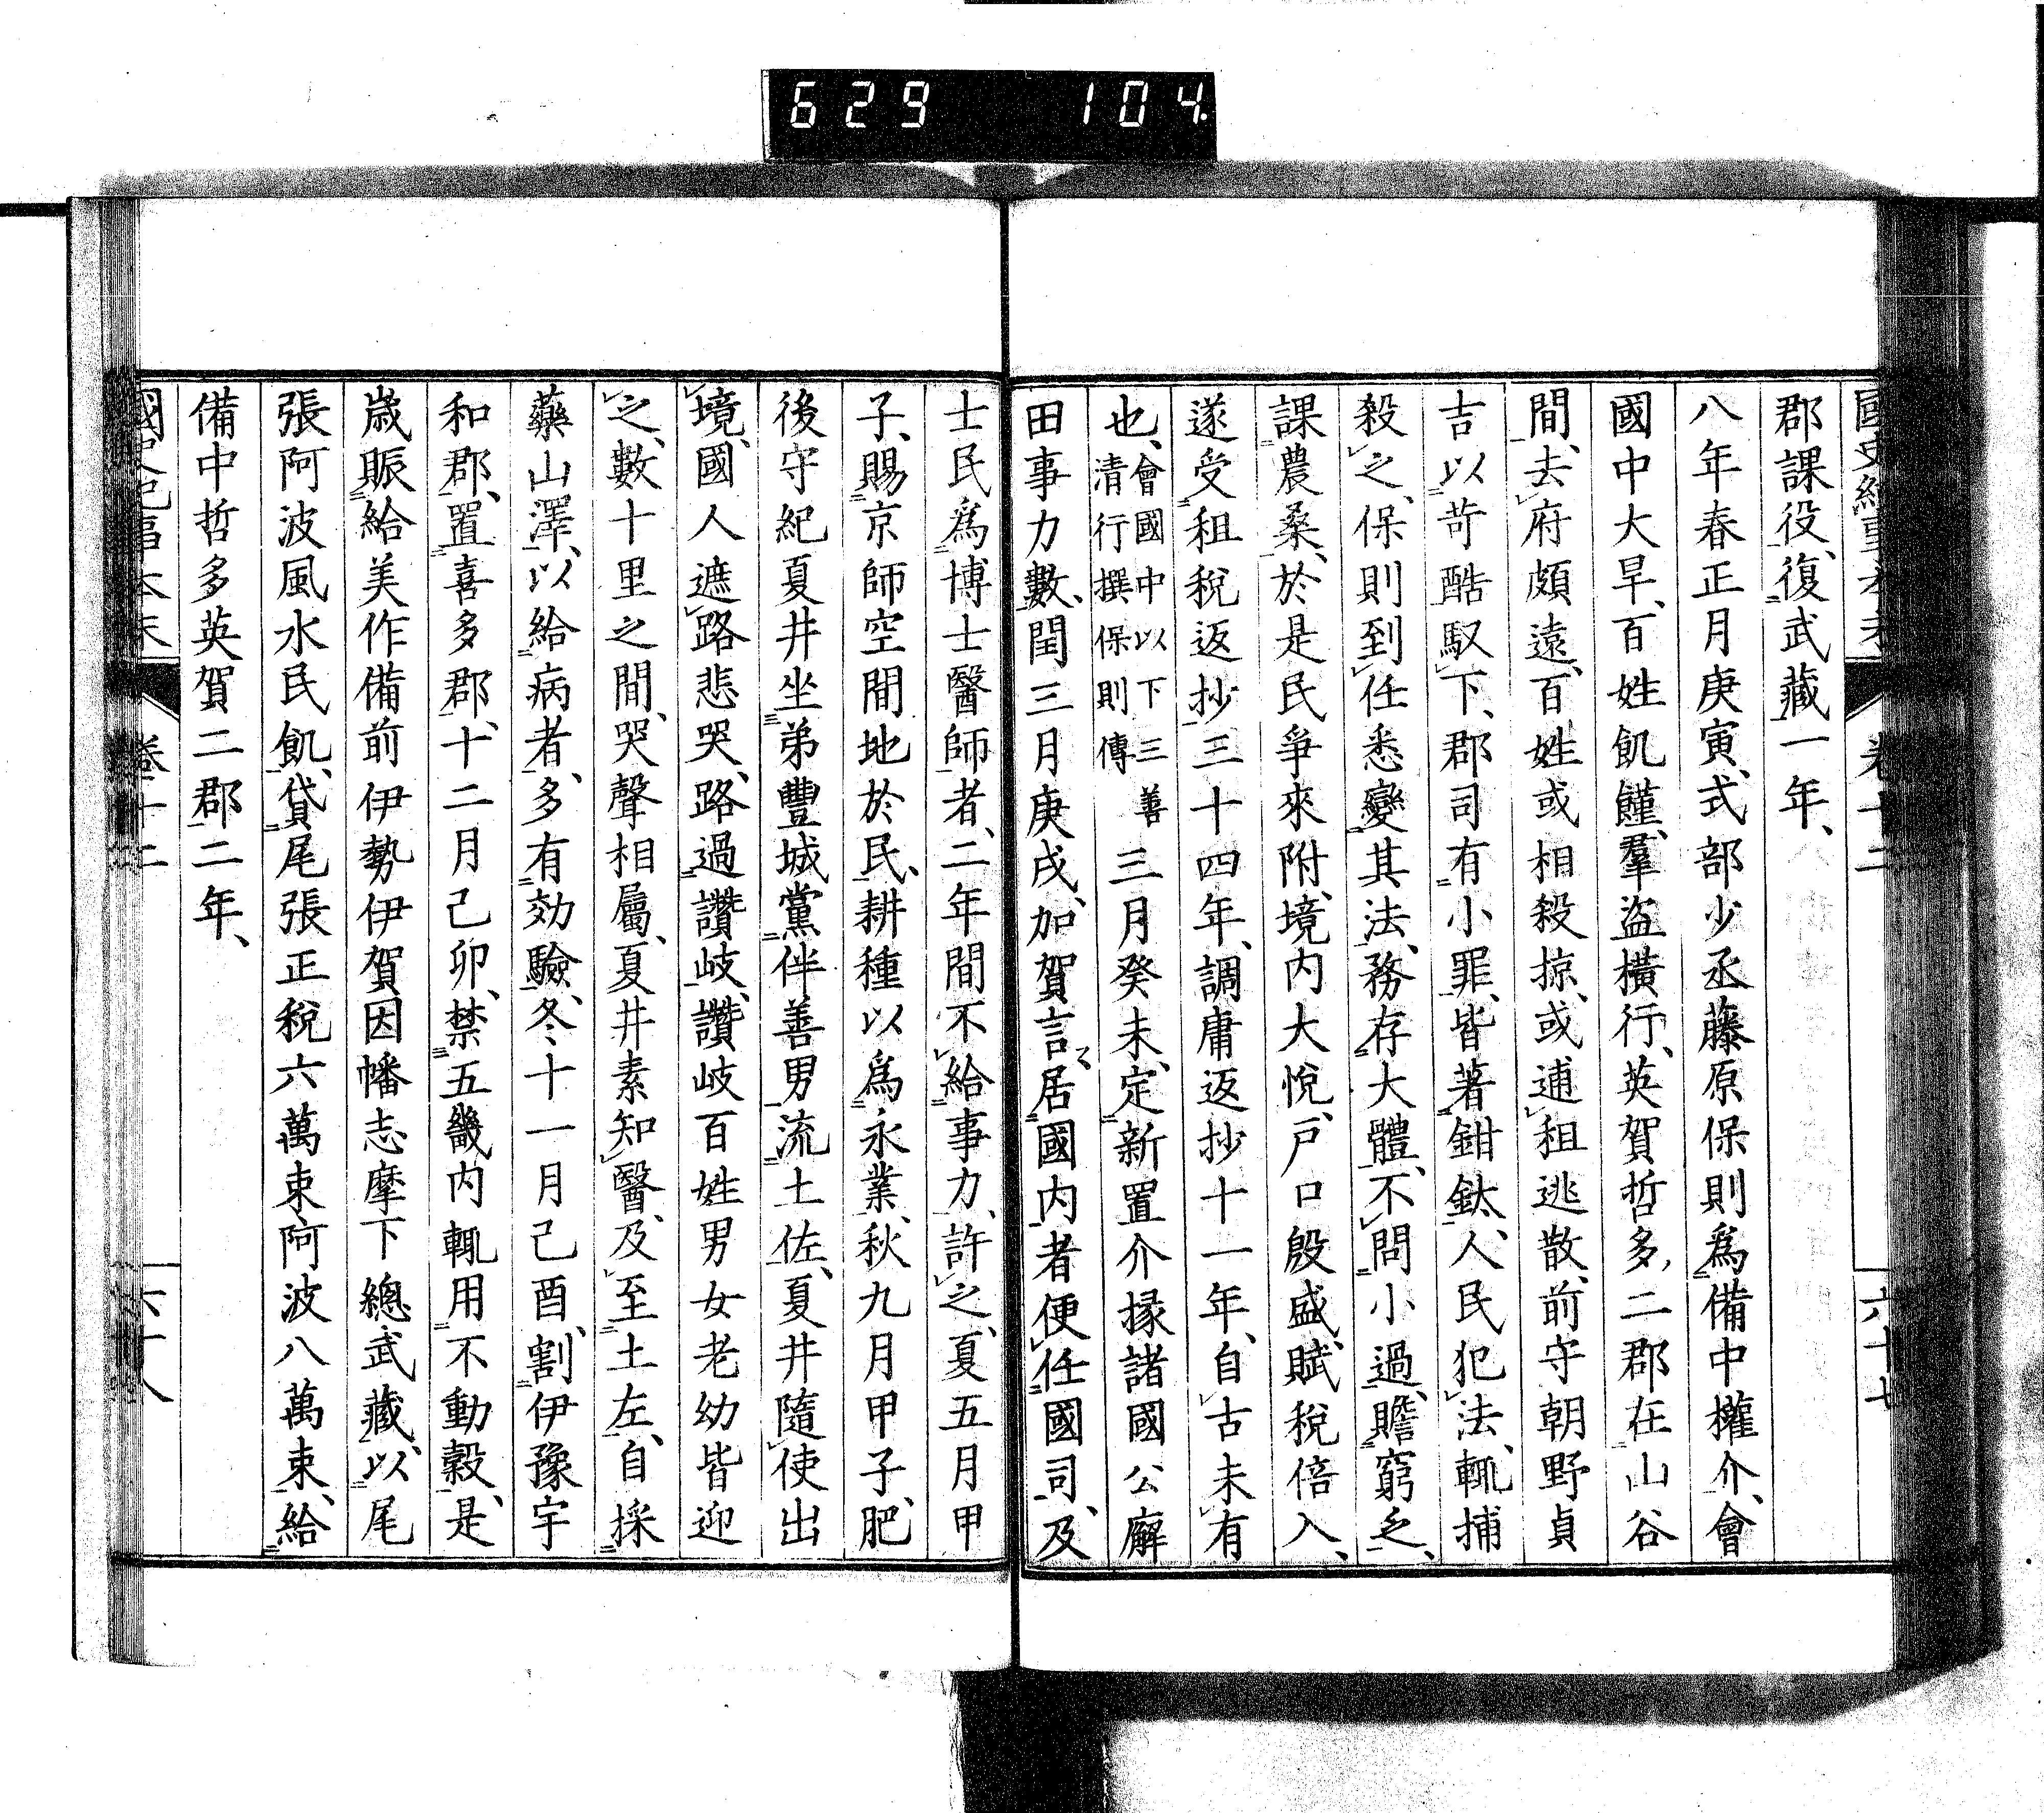 629 104.
郡課役、復武藏一年、
八年春正月庚寅、式部少丞藤原保則爲備中權介、會
國中大旱、百姓飢饉、羣盜橫行、英賀哲多二郡在山谷
間、去府頗遠、百姓或相殺掠、或逋租逃散、前守朝野貞
吉以苛酷馭下、郡司有小罪、皆著鉗釱、人民犯法、輒捕
殺之、保則到任悉變其法、務存大體、不問小過、贍窮乏、
課農桑、於是民爭來附、境內大悅、戶口殷盛、賦稅倍入、
遂受租稅返抄三十四年、調庸返抄十一年、自古未有
也、會國中以下三善
清行撰保則傳
三月癸未、定新置介掾諸國公廨
田事力數、閏三月庚戌、加賀言、居國內者便任國司、及
士民爲博士醫師者、二年間不給事力、許之、夏五月甲
子、賜京師空閒地於民、耕種以爲永業、秋九月甲子、肥
後守紀夏井坐弟豐城黨伴善男、流土佐、夏井隨使出
境、國人遮路悲哭、路過讚岐、讚岐百姓男女老幼皆迎
之、數十里之間、哭聲相屬、夏井素知醫、及至土左、自採
藥山澤、以給病者、多有効驗、冬十一月己酉、割伊豫宇
和郡、置喜多郡、十二月己卯、禁五畿內輒用不動穀、是
歲賑給美作備前伊勢伊賀因幡志摩下總武藏、以尾
張阿波風水民飢、貸尾張正稅六萬束阿波八萬束、給
備中哲多英賀二郡二年、